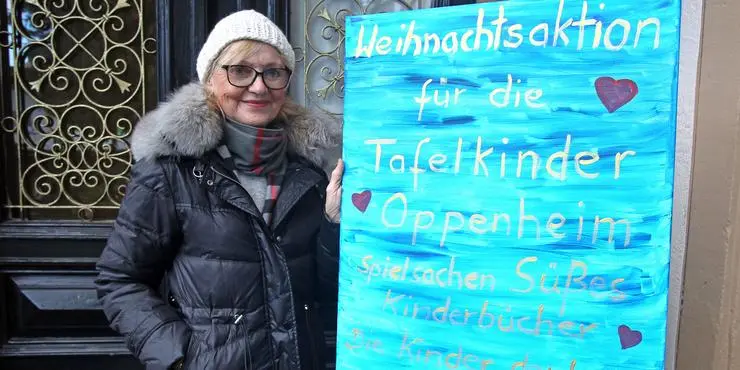 Weihnachtsaktion
für die
Tafelkinder
Oppenheim
Spielsachen Süßes
Kinderbücher
Die Kinder